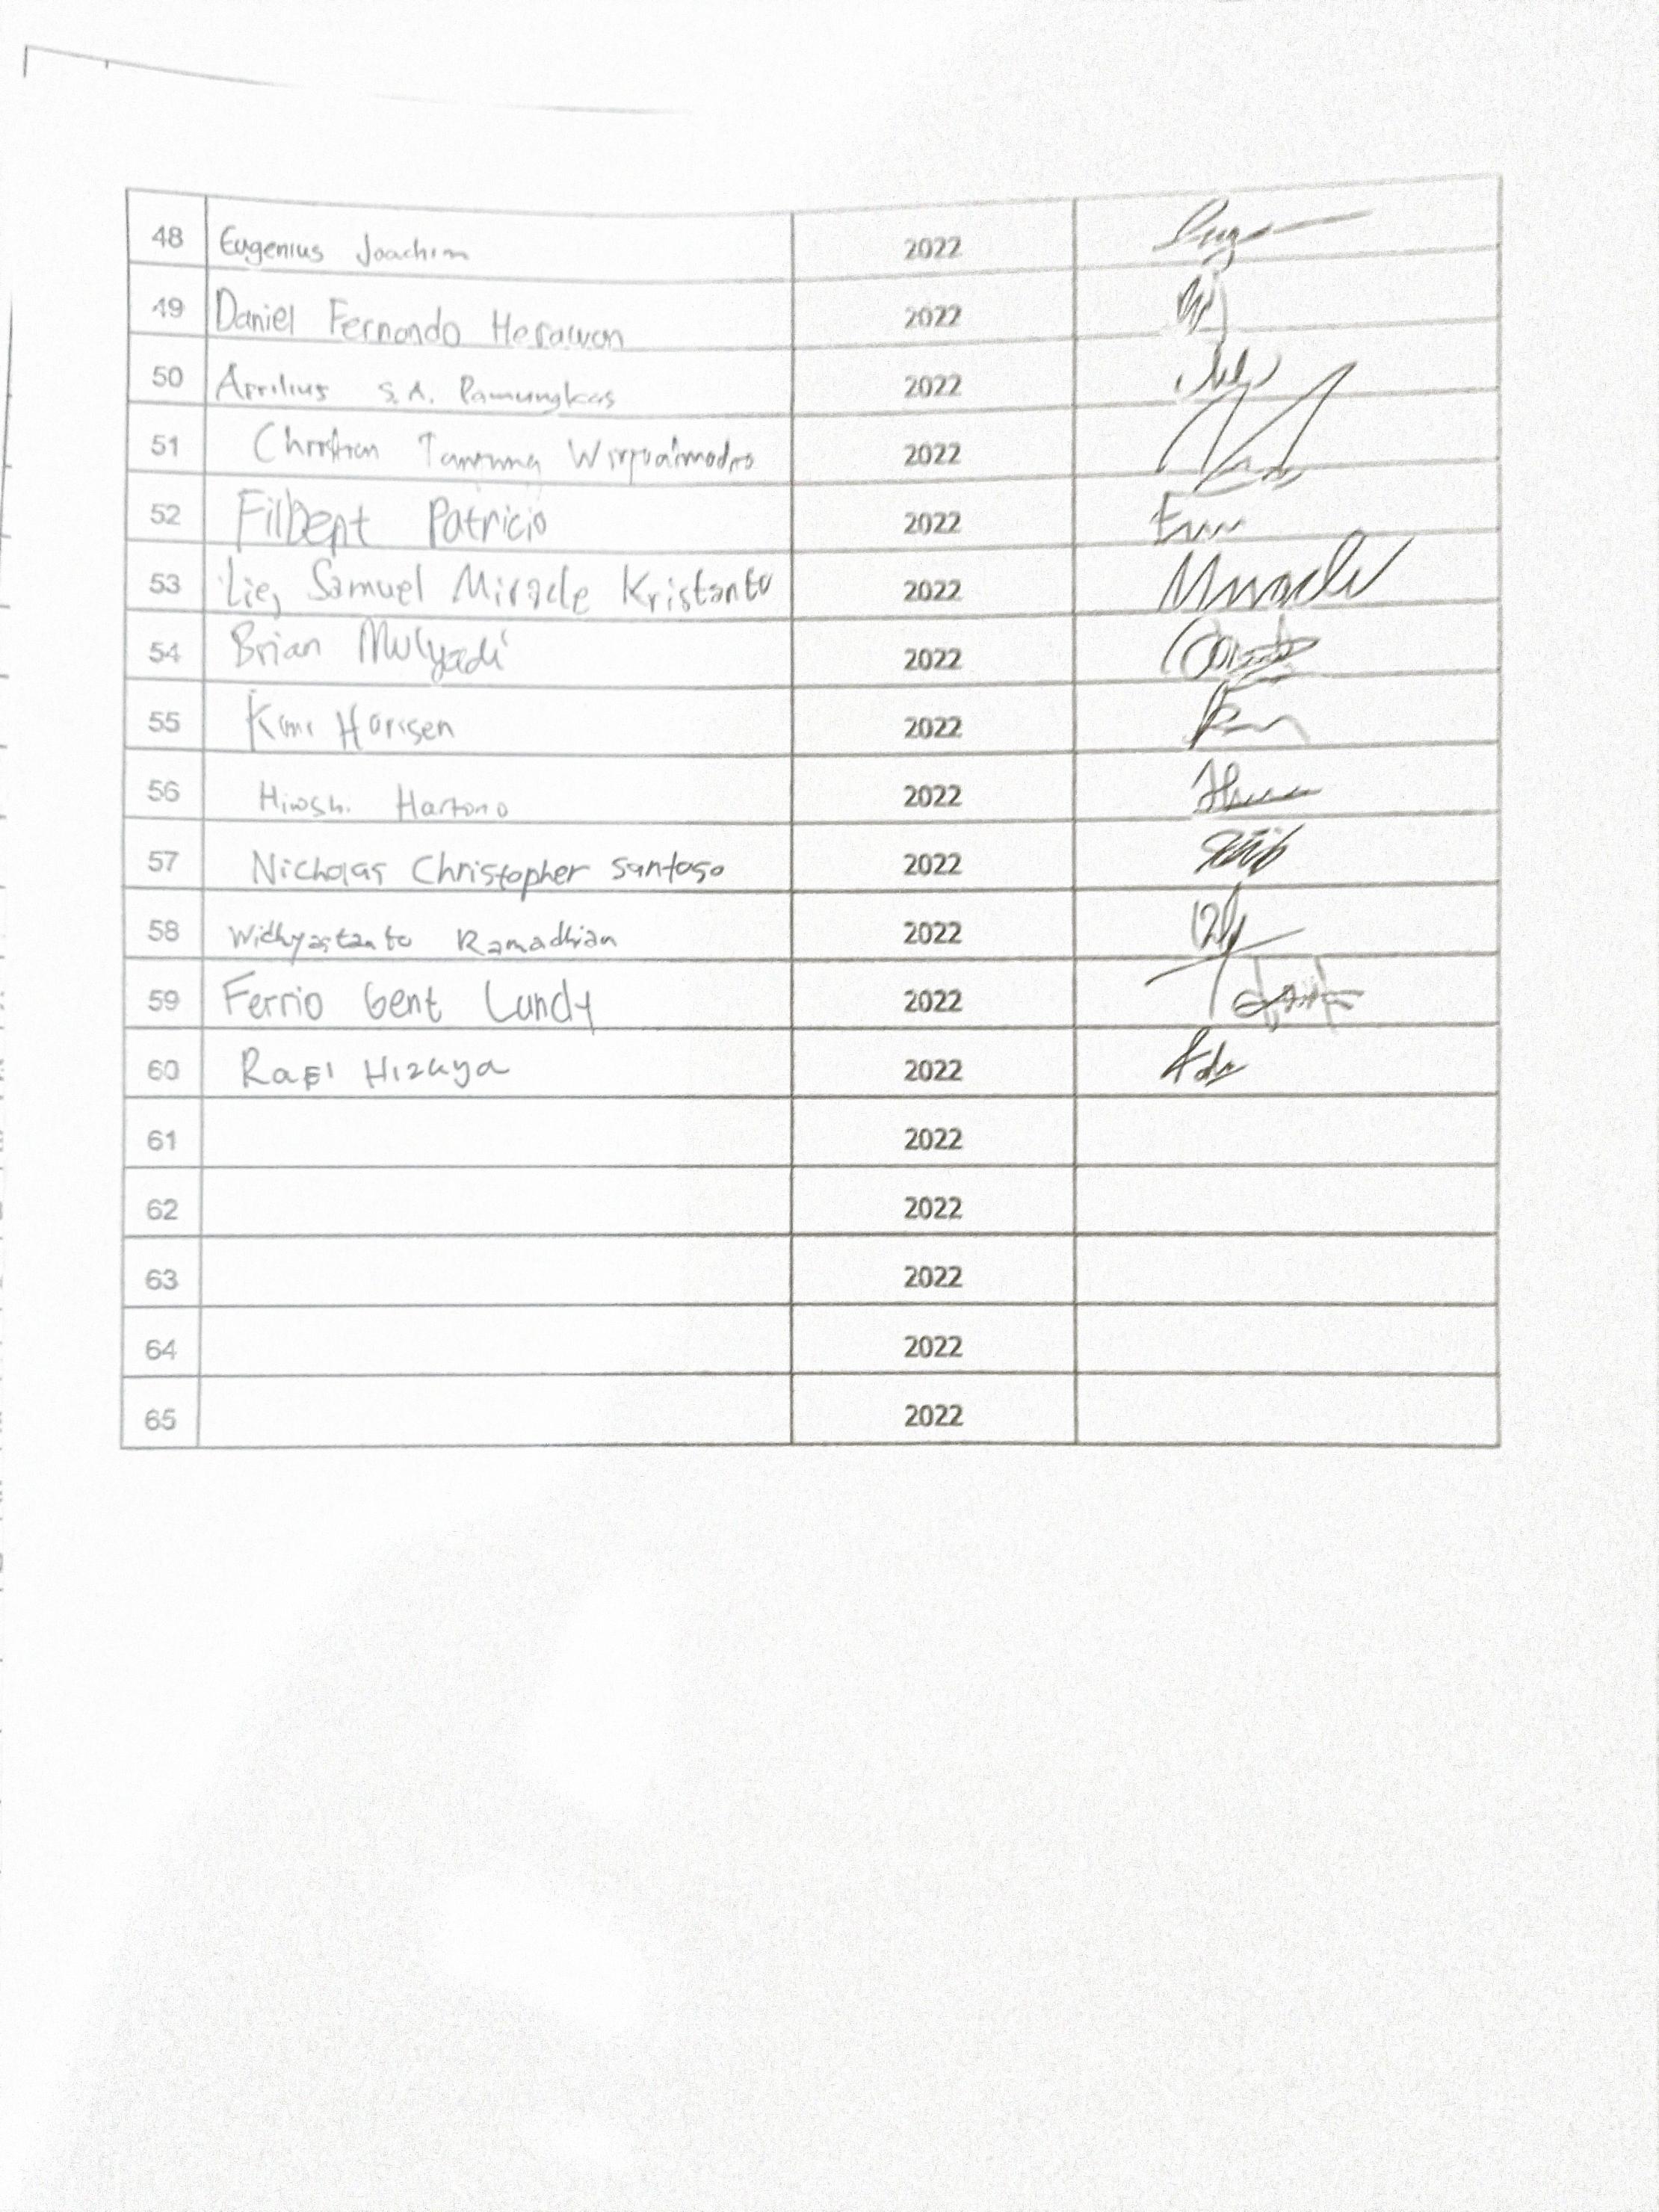 48 Eugenius Joachim 2022
49 Daniel Fernando Herawan 2022
50 Aprilius S.A. Pamungkas 2022
51 2022
52 Filbert Patricio 2022
53 Lie, Samuel Miracle Kristanto 2022 Miracle
54 Brian Mulyadi 2022
55 2022
56 Hiroshi Hartono 2022
57 Nicholas Christopher Santoso 2022
58 Widhyastanto Ramadhian 2022
59 Ferrio Gent Lundy 2022
60 Rafi Hizkya 2022
61 2022
62 2022
63 2022
64 2022
65 2022